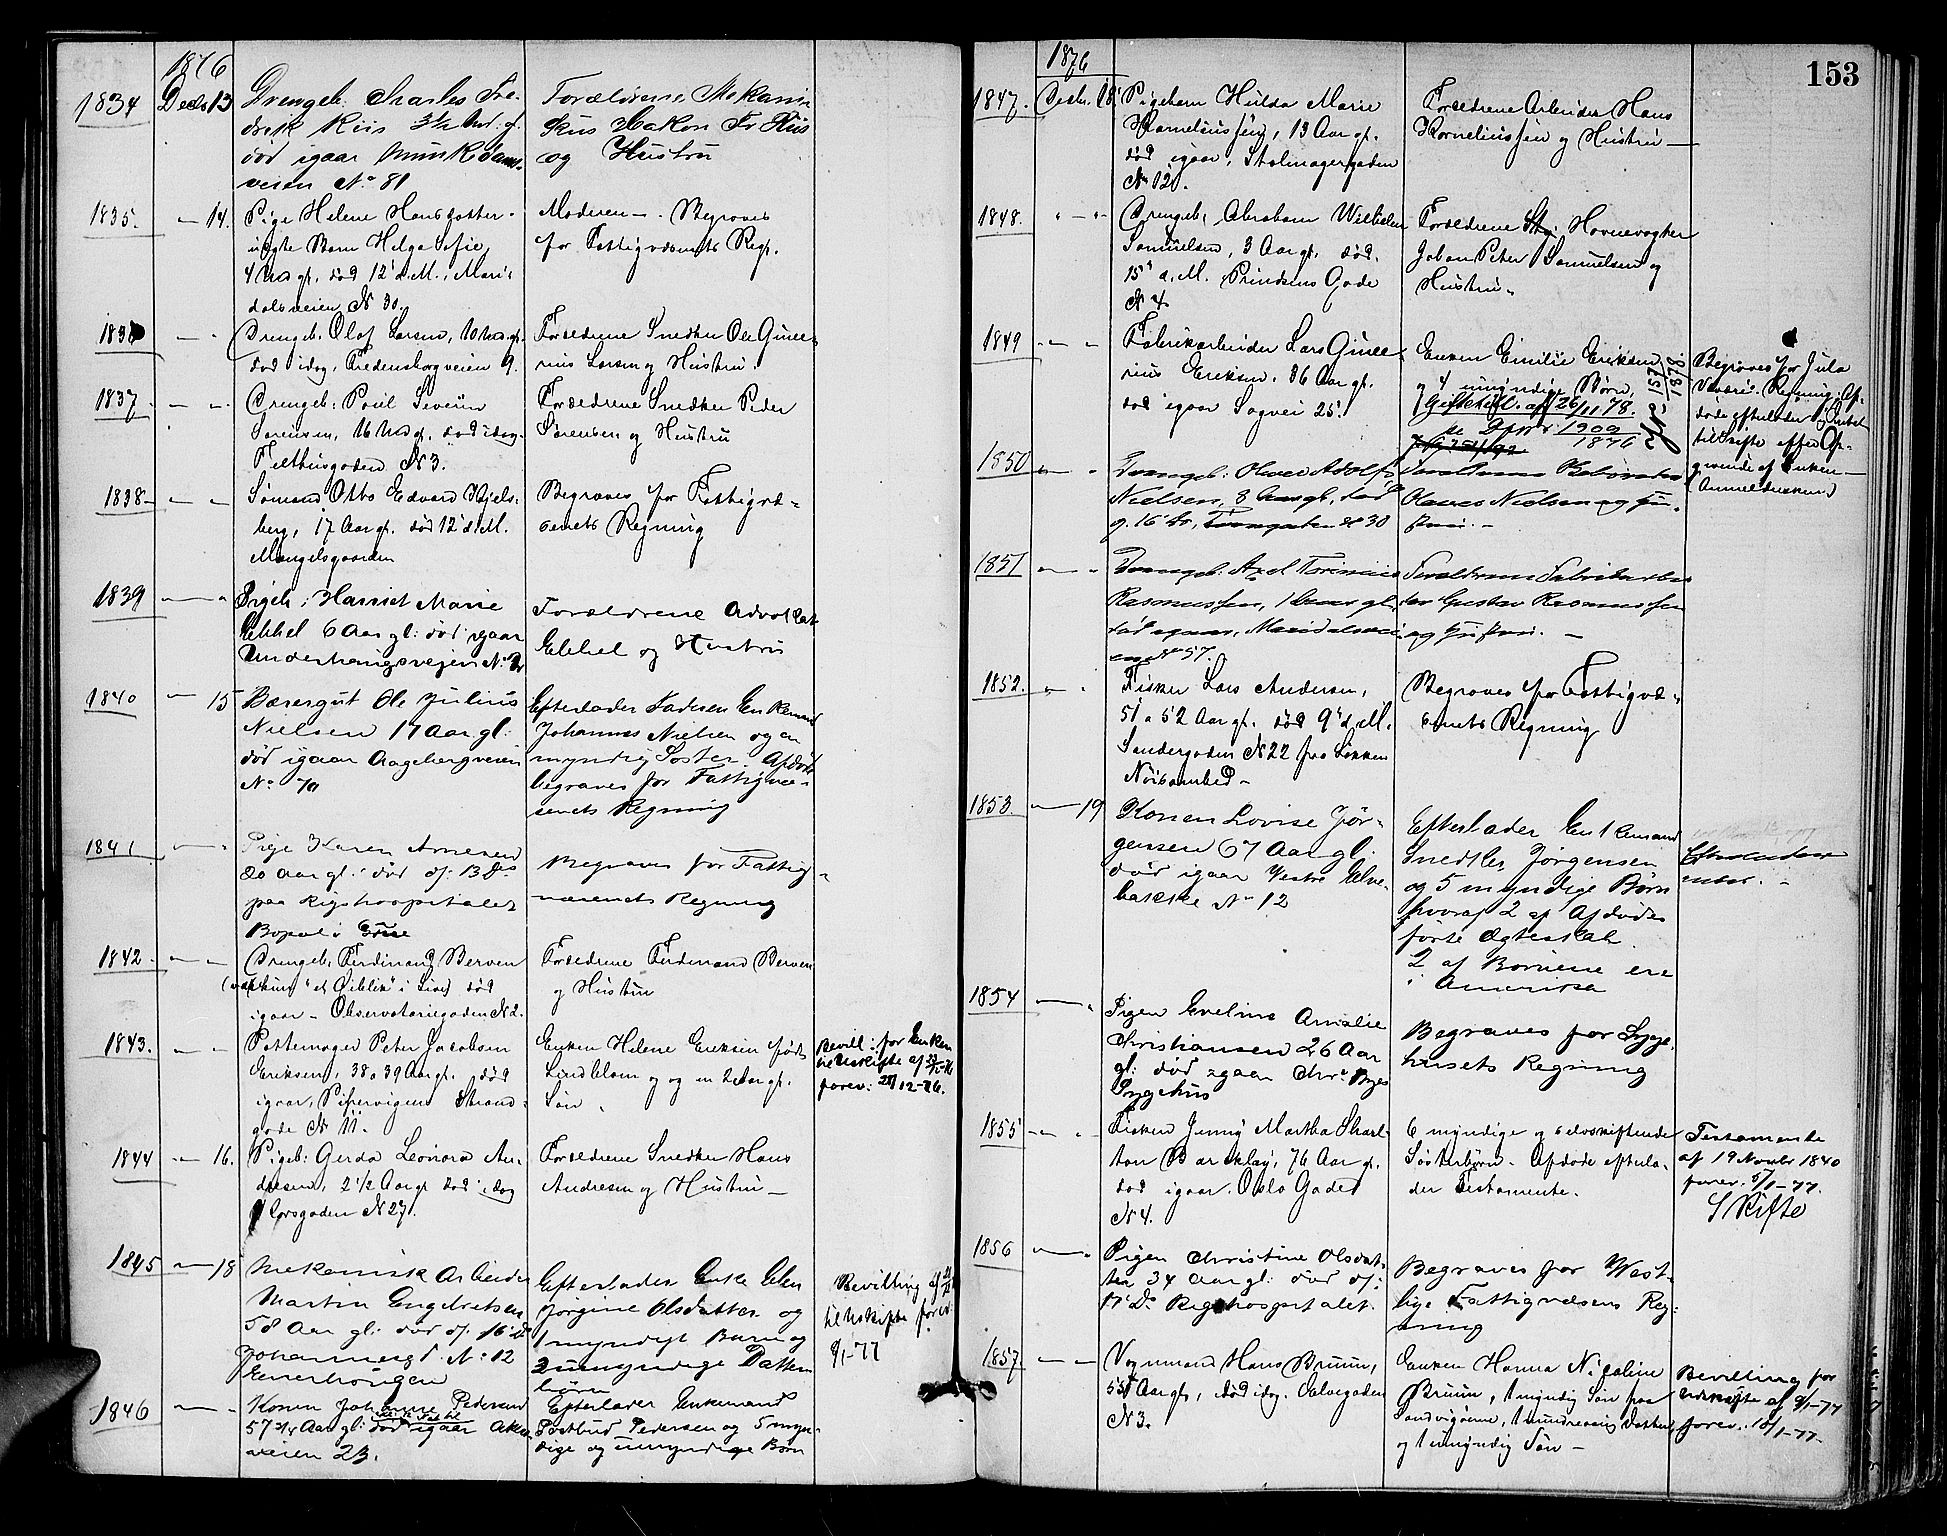 1876
1834 Decbr 13 Drengeb. Charles Fre-
drik Kiis 3½ Md. gl.
død igaar Munkedams-
veien No 81
Forældrene Mekanik
Kiis
og Hustru
1835. — 14. Pige Helene Hansdatter
uægte Barn Helga Sofie,
4 Md gl. død 12' d. M. Mari-
dalsveien N 30.
Moderen — Begraves
for Fattigvæsenets Regn.
— — Drengeb. Olaf Larsen, 10 Md. gl.
død idag, Fredensborgveien 9.
Forældrene Snedker Ole Gune-
rius Larsen og Hustru.
1837. — — Drengeb: Poul Severin
Sørensen, 16 Md gl. død idag.
Filthusgaden N 3.
Forældrene Snedker Peder
Sørensen og Hustru
1838 — — Sømand Otto Edvard Hjels-
berg, 17 Aar gl. død 12' d. M.
Mangelsgaarden
Begraves for Fattigvæ-
senets Regning
1839 — " Pigeb: Harriet Marie
6 Aar gl: død igaar
Underhaugsveien No
Forældrene Advokat
og Hustru
1840 — 15 Bæregut Ole Julius
Nielsen 17 Aar gl:
død igaar Aagebergveien
No
Efterlader Faderen Enkemand
Johannes Nielsen og en
myndig Søster. Afdøde
begraves for Fattigvæ-
senets Regning
1841 — " Pige Karen Arnesen
20 Aar gl: død d: 13 Ds
paa Rigshospitalet
Bopæl i
Begraves for Fattig-
væsenets Regning
1842. — — Drengeb. Ferdinand Berven
(var kun "et Øieblik" i Live) død
igaar — Observatoriegaden N 2.
Forældrene Ferdinand Berven
og Hustru
1843. — — Pottemager Peter Jacobsen
Eriksen, 38 a 39 Aar gl. død
igaar, Pipervigens Strand-
gade N 11.
Enken Helene Eriksen født
Lindblom og en 2 Aar gl.
Søn.
Bevill: for Enken
til Uskifte af
forev: 12-76.
1844 — 16. Pigeb: Gerda Leonora An-
dresen, 2½ Aar gl død idag
Korsgaden N 27.
Forældrene Snedker Hans
Andresen og Hustru —
1845 — 18 Mekanisk Arbeider
Martin Engelretsen
58 Aar gl: død d: 16' Ds
Johannesgd. No 12
Enerhougen
Efterlader Enke Elen
Jørgine Olsdatter og
1 myndigt Barn og
2 umyndige Datter
børn
Bevilling af
til Uskifte forev:
9/1-77
1846 — " Konen Johanne Pedersen
57 ¾ Aar gl: død igaar Akers-
veien 23.
Efterlader Enkemand
Postbud Pedersen og 5 myn-
dige og umyndige Børn
153
1876
1847. Decbr. 18. Pigebarn Hulda Marie
Kornelius sen, 13 Aar gl.
død igaar, Stolmagergaden
No 12.
Forældrene Arbeider Hans
Kornelius sen og Hustru —
1848. " — " Drengeb. Abraham Wilhelm
Samuelsen, 3 Aar gl. død
15' d. M. Prindsens Gade
N 4.
Forældrene Havnevogter
Johan Peter Samuelsen og
Hustru.
1849 — " Fabrikarbeider Lars Gune-
rius Eriksen, 36 Aar gl.
død igaar Sagvei 25.
Enken Emilie Eriksen
og 4 umyndige Børn,
Giftetill. af 26/11 78.
1900
1876
Begraves for Jula
Væveris Regning. Af-
døde efterlader Intet
til Skifte efter Op-
givende af Enken —
(Anmeldersken)
1850 — " Drengeb: Oluves Adolf
Nielsen, 3 Aar gl, død
d. 16 ds, No 30
Forældrene
Nielsen og Hu-
stru. —
1851 — " Drengeb: Axel
Rasmussen, 1 Aar gl.
død igaar, Maridalsvei-
en No 57.
Forældrene Fabrikarbei-
der Gustav Rasmussen
og Hustru. —
1852. — " Fisker Lars Andersen,
51 a 52 Aar gl. død 9' d. M.
Søndergaden N 22 fra Løkken
—
Begraves for Fattigvæ-
senets Regning
1853. — 19 Konen Lovise Jør-
gensen 67 Aar gl.
død igaar Vestre Elve-
bakke No 12
Efterlader Enkemand
Snedker Jørgensen
og 5 myndige Børn
hvoraf 2 af Afdødes
første Ægteskab.
2 af Børnene ere
i Amerika
Efterlader
Intet. —
1854 — " Pigen Eveline Amalie
Christiansen 26 Aar
gl: død igaar Chra Byes
Sygehus
Begraves for Syge-
husets Regning
1855 — " Frøken Jenny Martha Sharl-
ton Barcklay, 76 Aar gl.
død igaar. Oslo Gade
N 4.
6 myndige og selvskiftende
Søsterbørn. Afdøde efterla-
der Testamente.
Testamente
af 19 Novbr 1840
forev. 5/1-77.
Skifte
1856 — " Pigen Christine Olsdat-
ter 34 Aar gl: død d:
17' Ds Rigshospitalet.
Begraves for Vest-
lige Fattigvæsens Reg-
ning
1857 — — Vognmand Hans Bruun,
55 Aar gl, død idag. Calvegaden
N 3.
Enken Hanna Nicoline
Bruun, 1 myndig Søn paa
Sandvigøerne, 1 mindreaarig Datter,
og 1 umyndig Søn —
Bevilling for
Uskifte af 9/1-77
forev. 10/1-77.